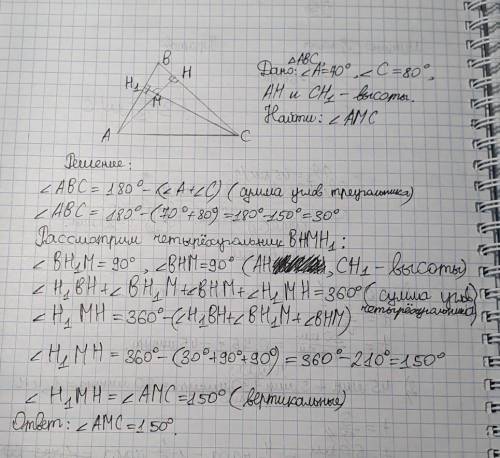 B
H
H₁
M
A
C
△ABC,
Дано: ∠A=70°, ∠C=80°,
AH и CH₁ – высоты.
Найти: ∠AMC
Решение:
∠ABC = 180° – (∠A+∠C) (сумма углов треугольника)
∠ABC = 180° – (70°+80) = 180° – 150° = 30°
Рассмотрим четырёхугольник BHMH₁:
∠BH₁M = 90°, ∠BHM = 90° (AH, CH₁ – высоты)
∠H₁BH + ∠BH₁M + ∠BHM + ∠H₁MH = 360° (сумма углов четырёхугольника)
∠H₁MH = 360° – (∠H₁BH + ∠BH₁M + ∠BHM)
∠H₁MH = 360° – (30°+90°+90°) = 360° – 210° = 150°
∠H₁MH = ∠AMC = 150° (вертикальные)
Ответ: ∠AMC = 150°.